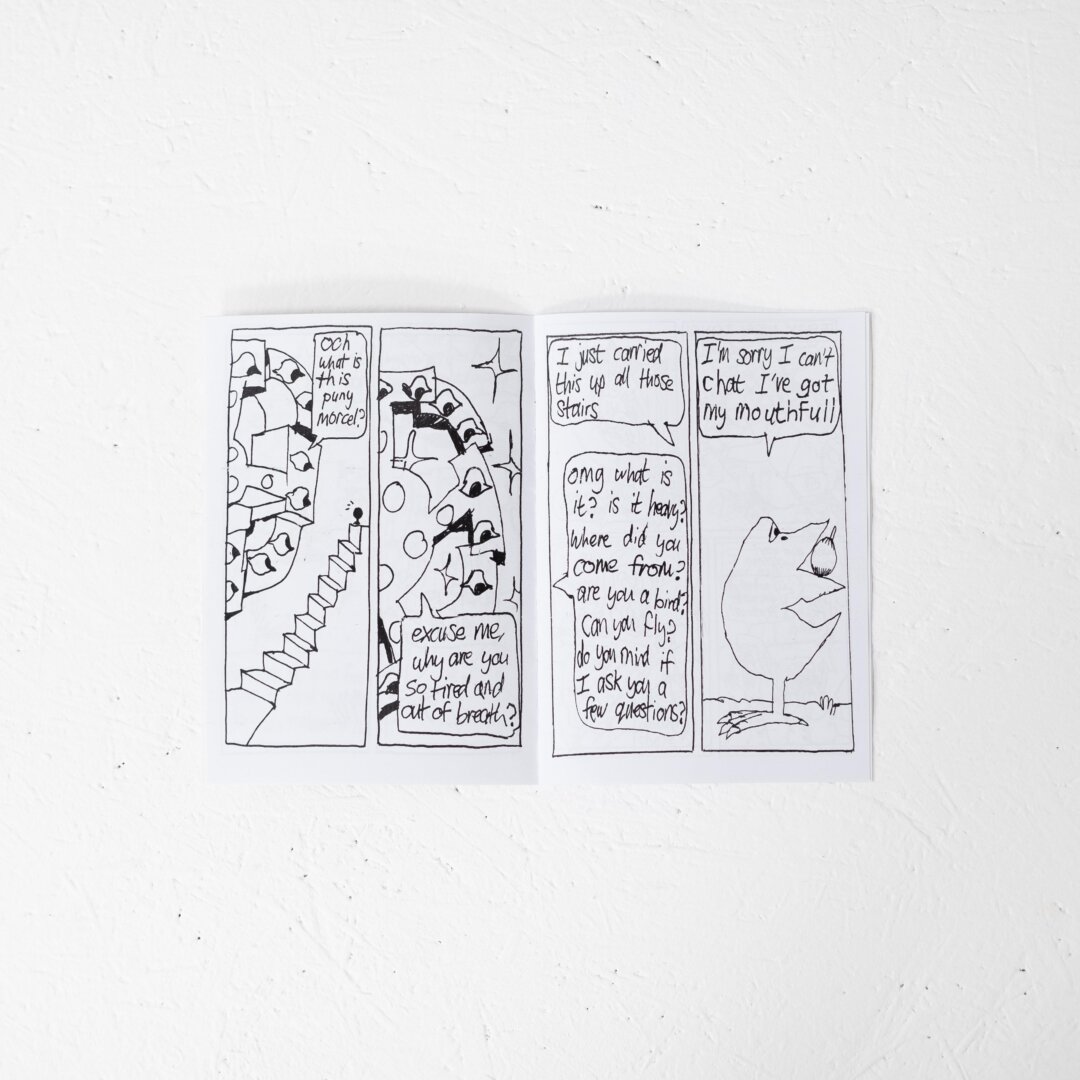 och
what is
this
puny
morcel?
excuse me,
why are you
so tired and
out of breath?
I just carried
this up all those
stairs
omg what is
it? is it heavy?
where did you
come from?
are you a bird?
Can you fly?
do you mind if
I ask you a
few questions?
I'm sorry I can't
chat I've got
my mouthfull